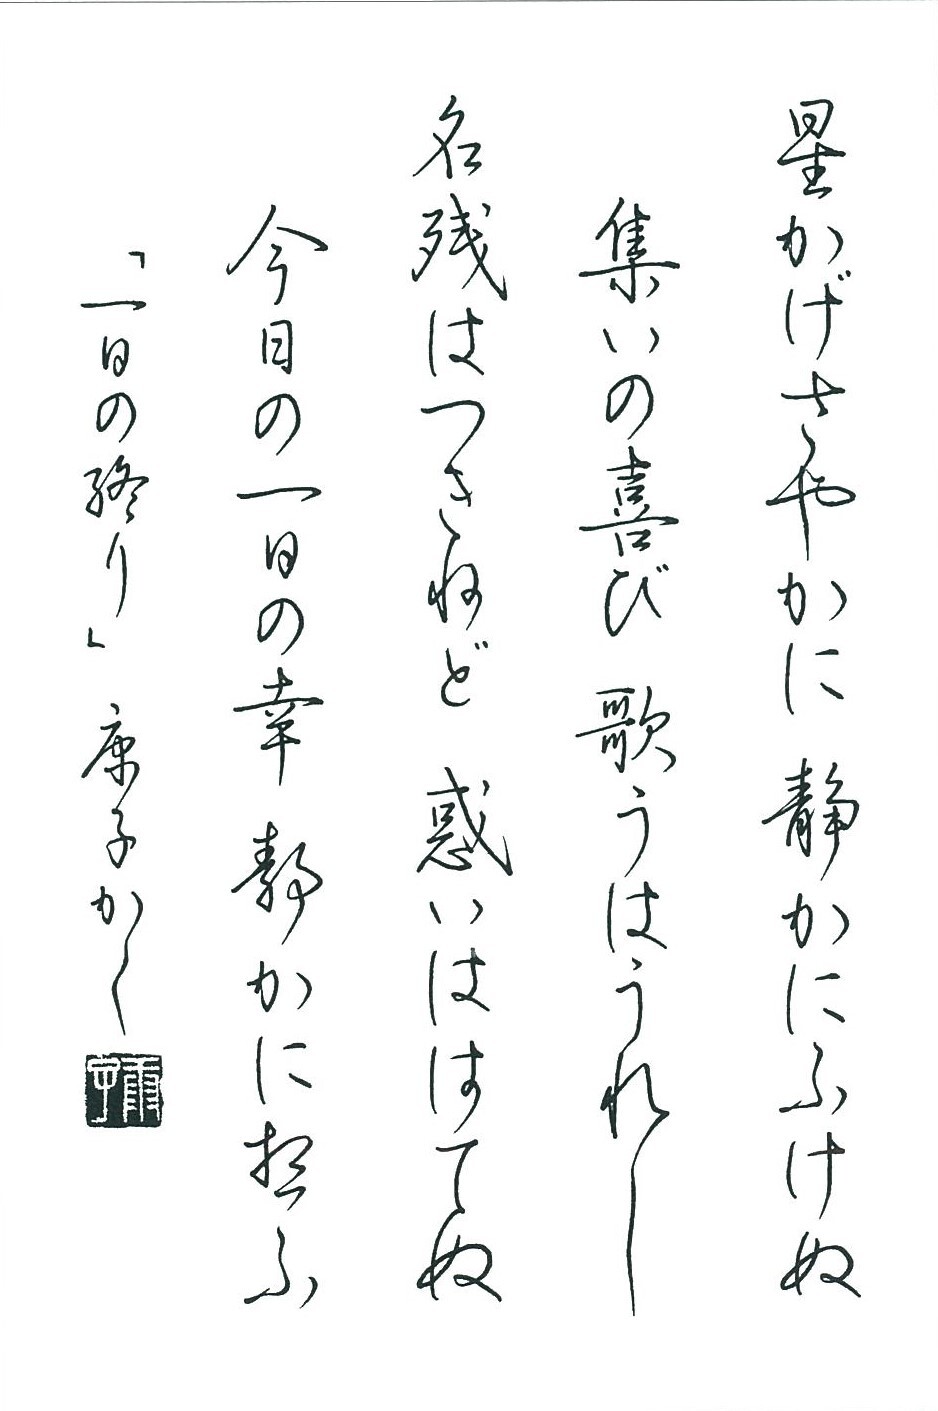 星かげさやかに 静かにふけぬ
集いの喜び 歌うはうれし
名残はつきねど 惑いははてぬ
今日の一日の幸 静かに想ふ
「一日の終り」 康子かく
康子